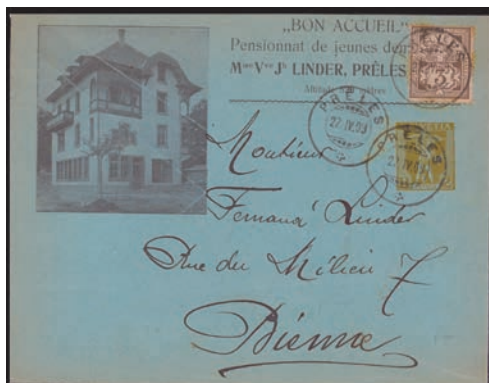 „BON ACCUEIL"
Pensionnat de jeunes
Mme Vve Js LINDER, PRÊLES
PRÊLES
3
PRÊLES
27.IV.09
PRÊLES
27.IV.09
Monsieur
Fernand Linder
Rue du Milieu 7
Bienne